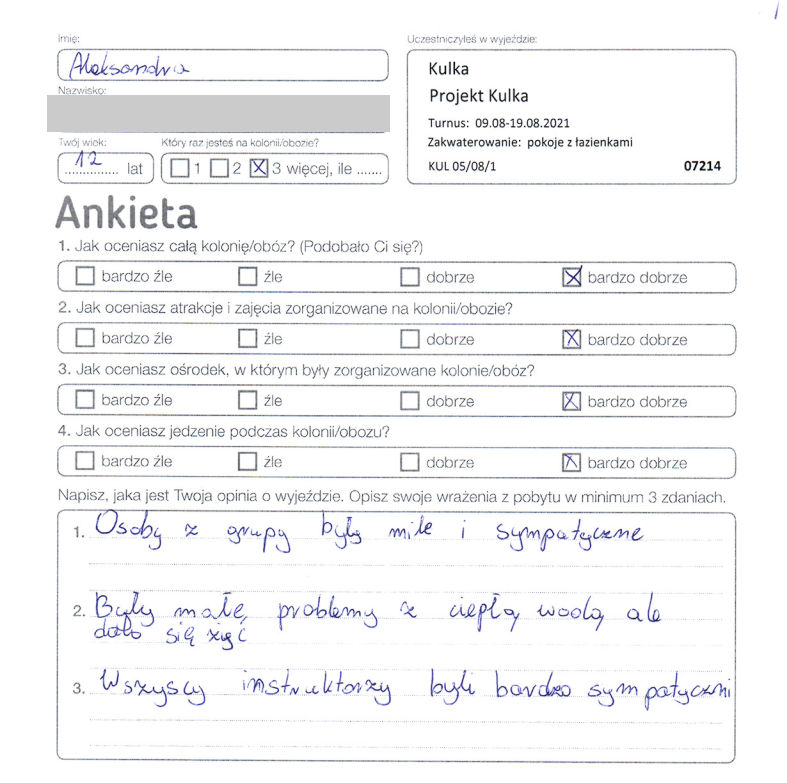 Imię:
Aleksandra
Nazwisko:
Twój wiek:
12 lat
Który raz jesteś na kolonii/obozie?
1 2 3 więcej, ile .......
Uczestniczyłeś w wyjeździe:
Kulka
Projekt Kulka
Turnus: 09.08-19.08.2021
Zakwaterowanie: pokoje z łazienkami
KUL 05/08/1 07214
Ankieta
1. Jak oceniasz całą kolonię/obóz? (Podobało Ci się?)
bardzo źle źle dobrze bardzo dobrze
2. Jak oceniasz atrakcje i zajęcia zorganizowane na kolonii/obozie?
bardzo źle źle dobrze bardzo dobrze
3. Jak oceniasz ośrodek, w którym były zorganizowane kolonie/obóz?
bardzo źle źle dobrze bardzo dobrze
4. Jak oceniasz jedzenie podczas kolonii/obozu?
bardzo źle źle dobrze bardzo dobrze
Napisz, jaka jest Twoja opinia o wyjeździe. Opisz swoje wrażenia z pobytu w minimum 3 zdaniach.
1. Osoby z grupy były miłe i sympatyczne
2. Były małe problemy z ciepłą wodą ale
dało się żyć
3. Wszyscy instruktorzy byli bardzo sympatyczni